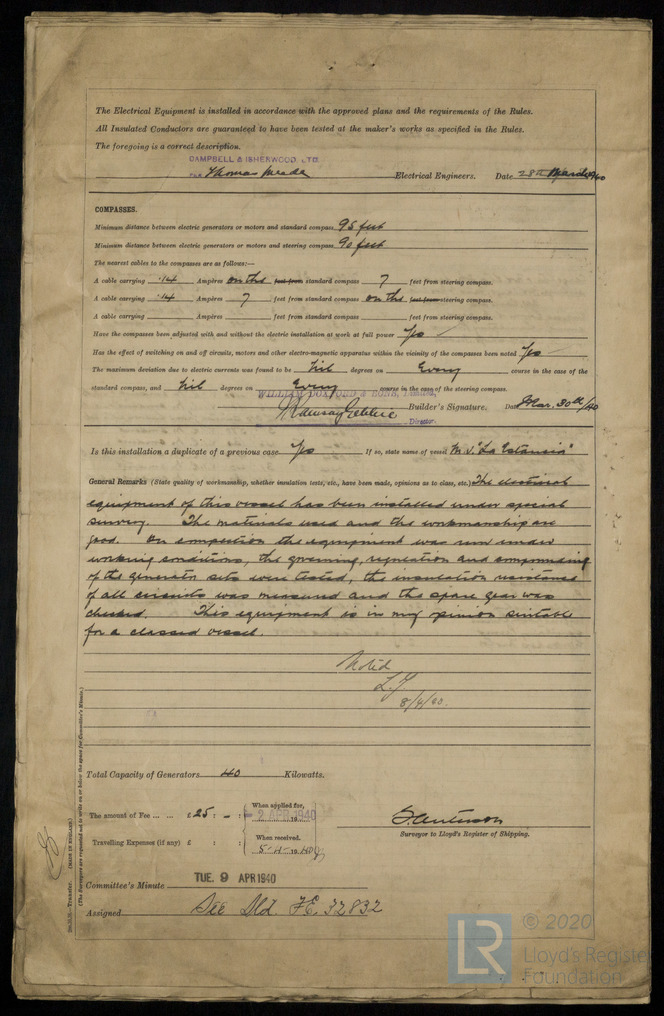 The Electrical Equipment is installed in accordance with the approved plans and the requirements of the Rules.
All Insulated Conductors are guaranteed to have been tested at the maker's works as specified in the Rules.
The foregoing is a correct description.
CAMPBELL & ISHERWOOD, LTD.
Thomas Meade Electrical Engineers. Date 28th March 1940
COMPASSES.
Minimum distance between electric generators or motors and standard compass 95 feet
Minimum distance between electric generators or motors and steering compass 90 feet
The nearest cables to the compasses are as follows:—
A cable carrying .14 Ampères on the feet from standard compass 7 feet from steering compass.
A cable carrying .14 Ampères 7 feet from standard compass on the feet from steering compass.
A cable carrying Ampères feet from standard compass feet from steering compass.
Have the compasses been adjusted with and without the electric installation at work at full power Yes
Has the effect of switching on and off circuits, motors and other electro-magnetic apparatus within the vicinity of the compasses been noted Yes
The maximum deviation due to electric currents was found to be Nil degrees on Every course in the case of the
standard compass, and Nil degrees on Every course in the case of the steering compass.
WILLIAM DOXFORD & SONS, Limited,
Builder's Signature. Date Mar. 30th/40
Director.
Is this installation a duplicate of a previous case Yes If so, state name of vessel M.V. "La Estancia"
General Remarks (State quality of workmanship, whether insulation tests, etc., have been made, opinions as to class, etc.) The electrical
equipment of this vessel has been installed under special
survey. The materials used and the workmanship are
good. On completion the equipment was run under
working conditions, the governing, regulation and compounding
of the generator sets were tested, the insulation resistance
of all circuits was measured and the spare gear was
checked. This equipment is in my opinion suitable
for a classed vessel.
Noted
8/4/40.
Total Capacity of Generators 40 Kilowatts.
The amount of Fee ... ... £25 : - : - When applied for, 2 APR 1940
Travelling Expenses (if any) £ : : When received, 5-4-1940
Surveyor to Lloyd's Register of Shipping.
Committee's Minute TUE. 9 APR 1940
Assigned See Sld. F.E. 32832
(MADE IN ENGLAND.)
(The Surveyors are requested not to write on or below the space for Committee's Minute.)
LR © 2020
Lloyd's Register
Foundation